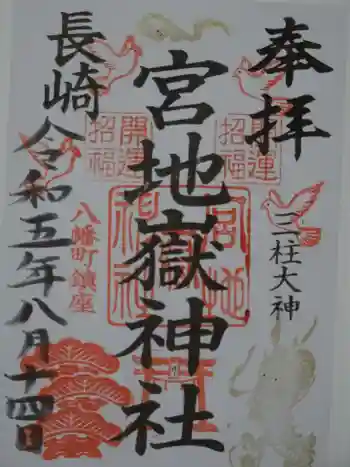 奉拝
三柱大神
開運
招福
宮地嶽神社
宮地
嶽
神社
開運
招福
八幡町鎮座
長崎
令和五年八月十四日